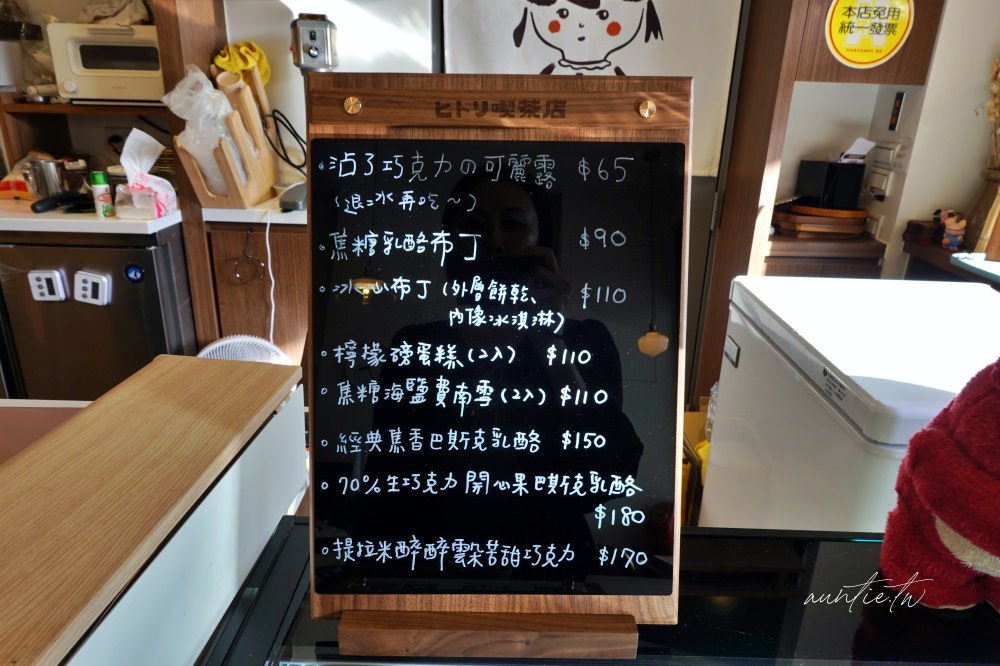 本店免用
統一發票
ヒトリ喫茶店
。沾了巧克力の可麗露 $65
(退冰再吃~)
。焦糖乳酪布丁 $90
。冰心布丁(外層餅乾、 $110
內像冰淇淋)
。檸檬磅蛋糕(2入) $110
。焦糖海鹽費南雪(2入) $110
。經典蕉香巴斯克乳酪 $150
。70%生巧克力開心果巴斯克乳酪
$180
。提拉米酥醉雲朵苦甜巧克力 $170
auntie.tw